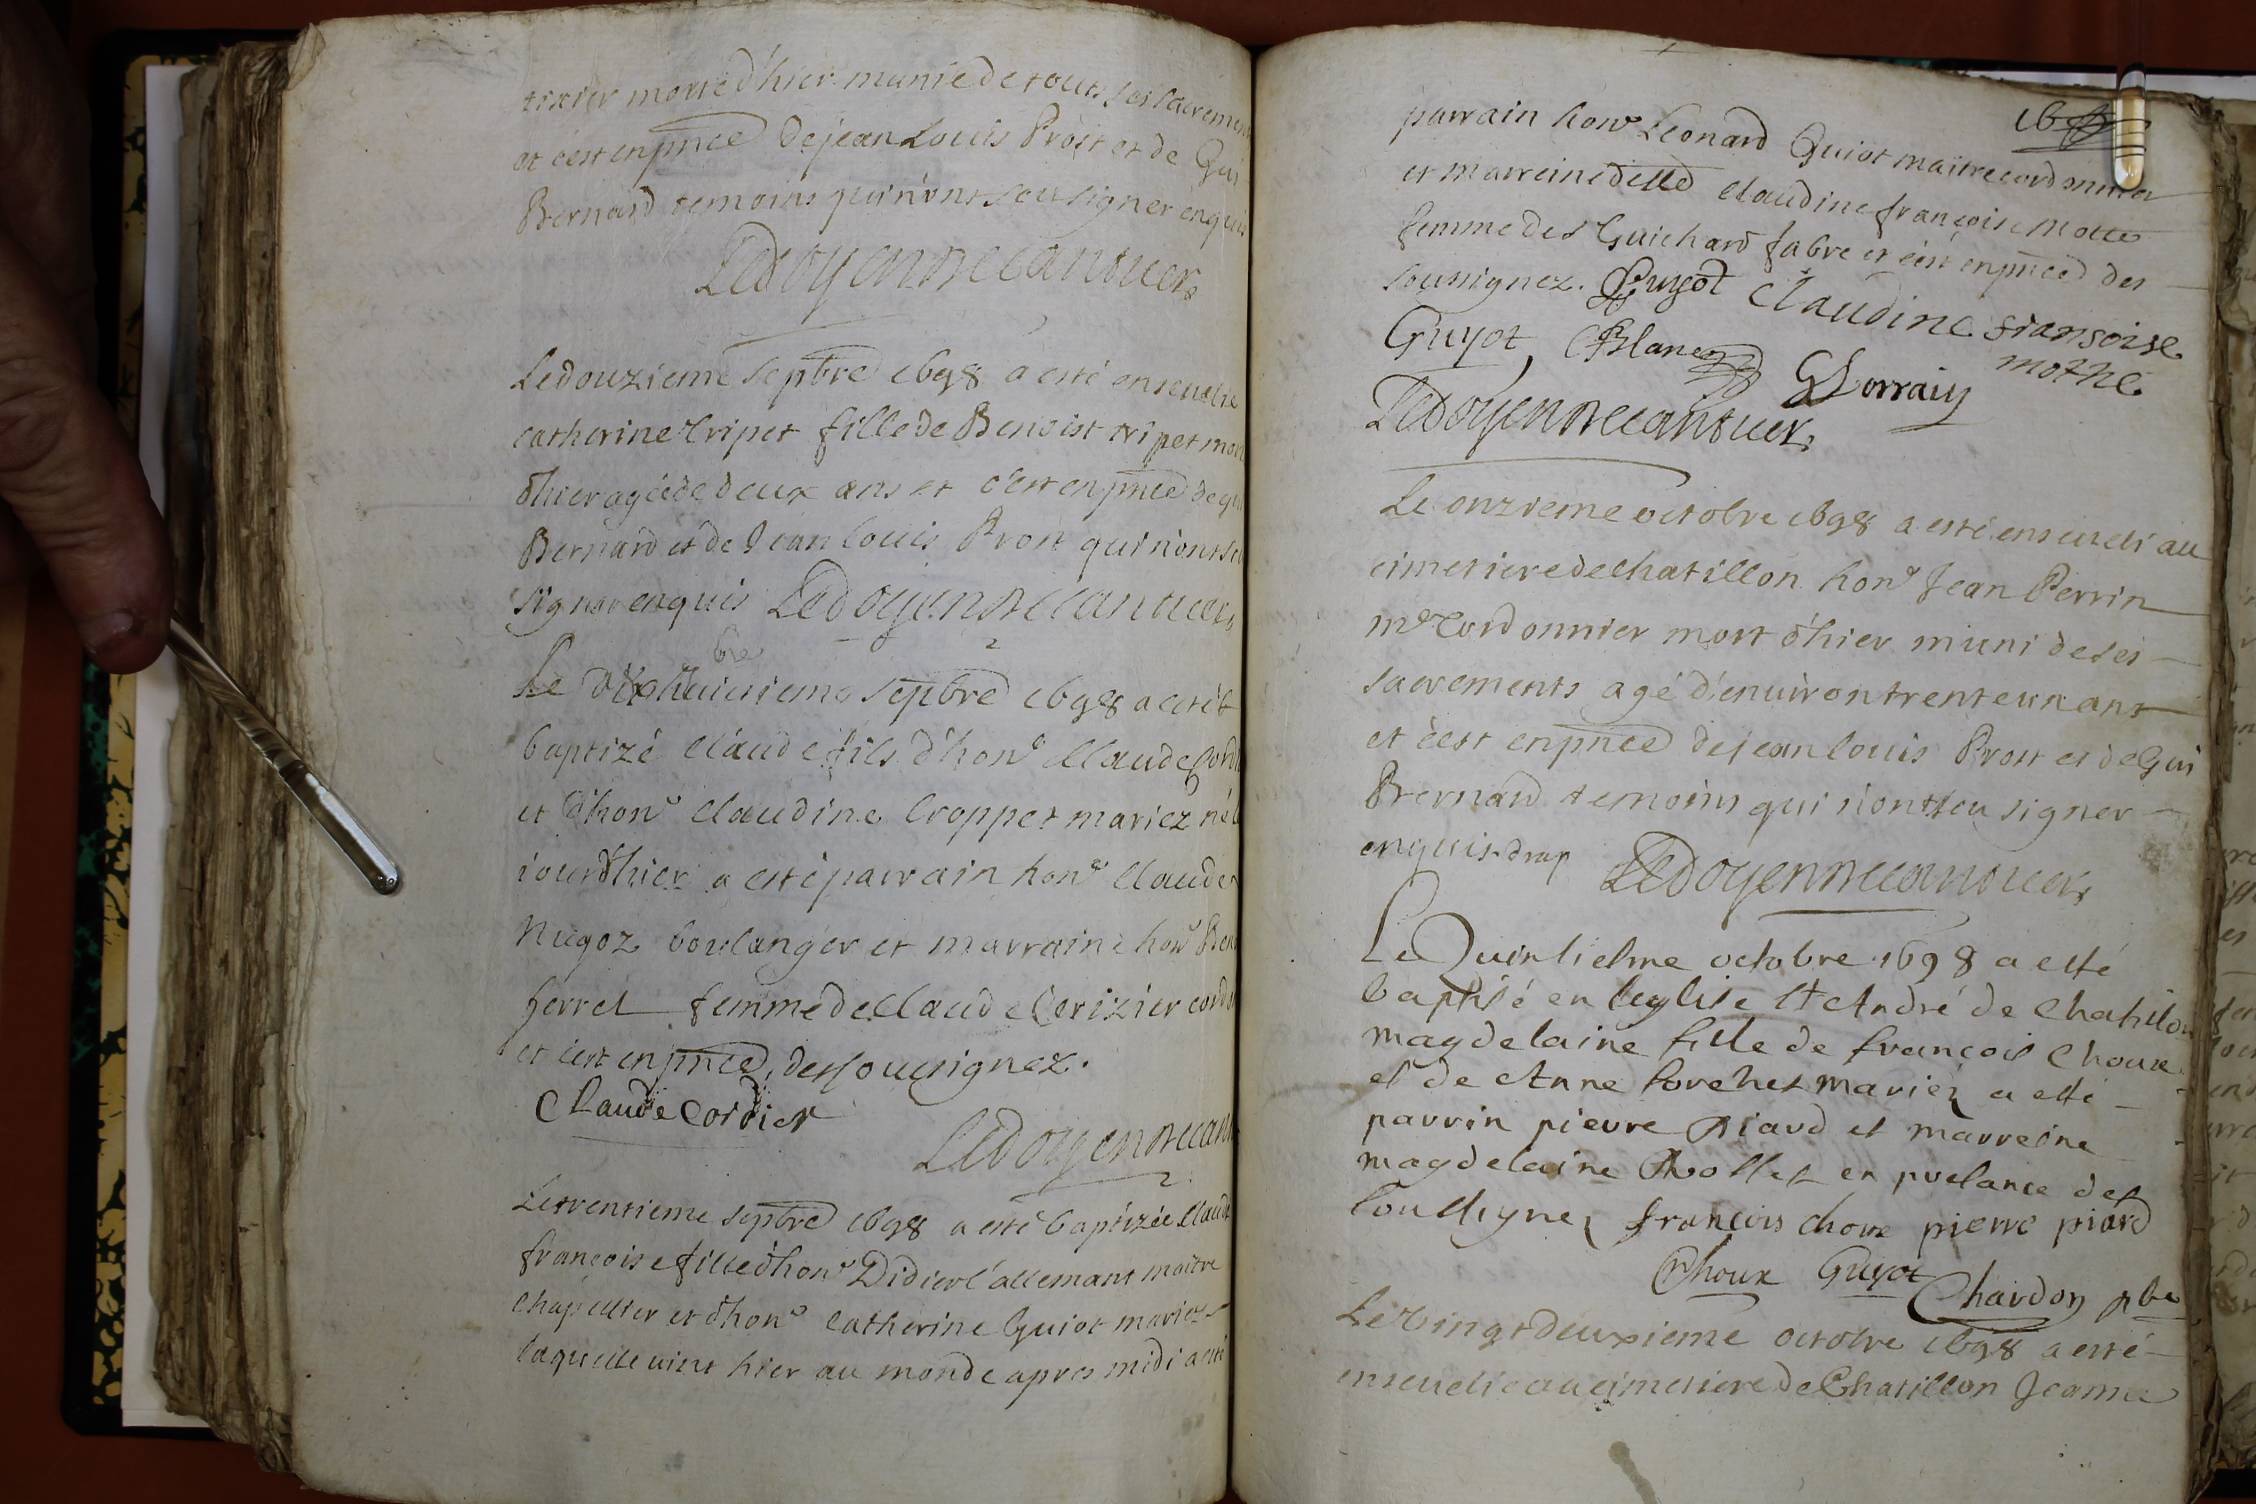 tixier morte d'hier munie de touts ses sacremen
et c'est en pnce de jean Louis Prost et de Gui
Bernard temoins qui n'ont sceu signer enquis
Ledoyennecantuers
Le douzieme sepbre 1698 a esté ensevelie
catherine tripet fille de Benoist tripet mor
d'hier agée de deux ans et c'est en pnce de gui
Bernard et de Jean louis Prost qui n'ont sc
signer enquis Ledoyennecantuers
bre
Le dix huictieme sepbre 1698 a esté
baptizé Claude fils d'hon^e Claude Cordi
et d'hon^e Claudine Croppet mariez né l
iour d'hier a esté parrain hon^e Claude
Nugoz boulanger et marraine hon^e Ben
ferret femme de Claude Cerizier cord
et c'est en pnce des sousignez.
Claude Cordier
Ledoyennecan
Le trentieme sepbre 1698 a esté baptizée Claud
francoise fille d'hon^e Didier l'allemant maitre
chapellier et d'hon^e Catherine Guiot mariez
laquelle vint hier au monde apres midi a esté
parrain hon^e Leonard Guiot maitre cordonnier
et marreine delle Claudine françoise Motte
femme de s^r Guichard fabre et c'est en pnce des
sousignez. Guyot Claudine fransoise
mothe
Guyot, Blanc GLorrain
Ledoyennecantuers
Le onzieme octobre 1698 a esté enseveli au
cimetiere de Chatillon hon^e Jean Perrin
m^e Cordonnier mort d'hier muni de ses
sacrements agé d'environ trente un ans
et c'est en pnce de jean louis Prost et de Gui
Bernard temoins qui n'ont sceu signer
enquis. drap Ledoyennecantuers
Le Quinsiesme octobre 1698 a esté
baptisé en leglise St André de Chatilon
magdelaine fille de francois Choux
et de Anne forchet mariez a esté
parrin pierre Piard et marreine
magdelaine Rollet en presance des
soussignez francois choux pierre piard
Choux Guyot Chardon pbre
Le vingt deuxieme octobre 1698 a esté
ensevelie au cimetiere de Chatillon Jeanne